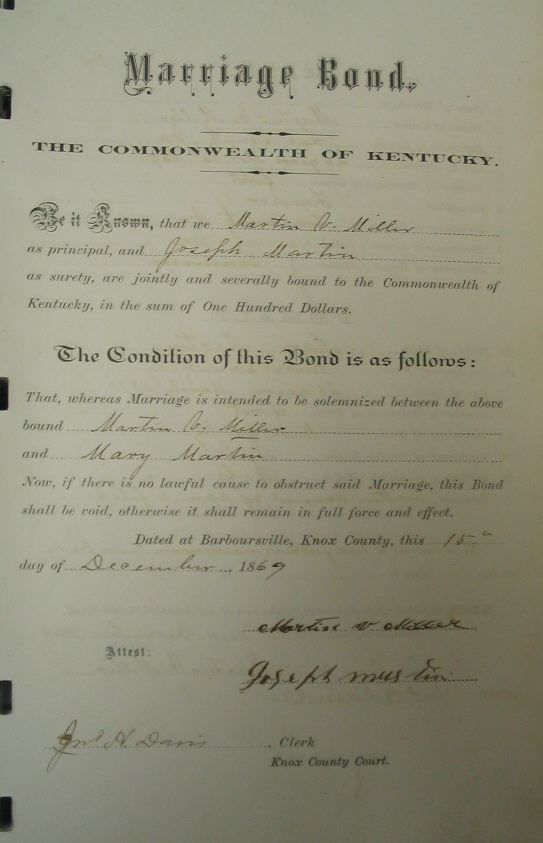 Marriage Bond.
THE COMMONWEALTH OF KENTUCKY.
Be it Known, that we Martin V. Miller
as principal, and Joseph Martin
as surety, are jointly and severally bound to the Commonwealth of
Kentucky, in the sum of One Hundred Dollars.
The Condition of this Bond is as follows:
That, whereas Marriage is intended to be solemnized between the above
bound Martin V. Miller
and Mary Martin
Now, if there is no lawful cause to obstruct said Marriage, this Bond
shall be void, otherwise it shall remain in full force and effect.
Dated at Barboursville, Knox County, this 15
day of December, 1869
Martin v Miller
Attest:
Joseph martin
Jno H. Davis, Clerk
Knox County Court.